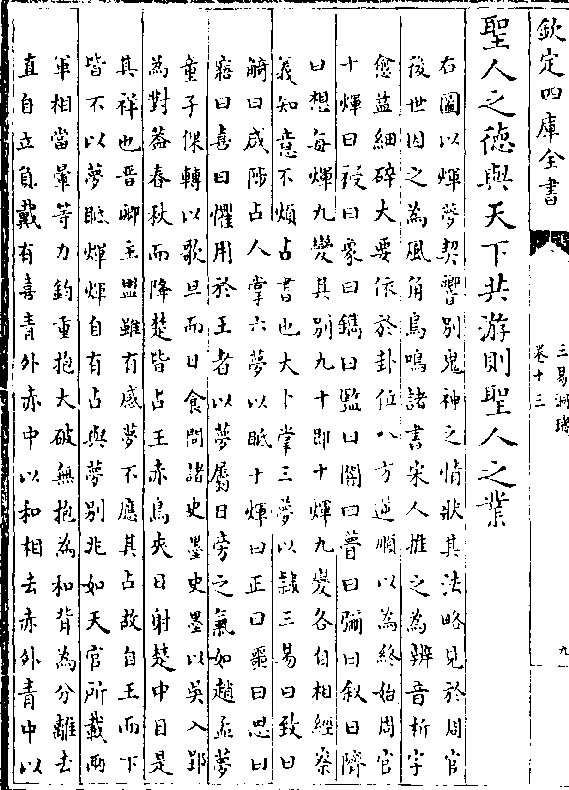 欽定四庫全書
三易洞璣
卷十三
九
聖人之德與天下共游則聖人之業
右圖以煇夢契響別鬼神之情狀其法略見於周官
後世因之為風角鳥鳴諸書宋人推之為辨音析字
愈益細碎大要依於卦位八方逆順以為終始周官
十煇曰祲曰象曰鐫曰監曰闇曰瞢曰彌曰叙曰隮
曰想每煇九變其別九十即十煇九變各自相經察
義知意不煩占書也大卜掌三夢以隷三易曰致曰
觭曰咸陟占人掌六夢以眡十煇曰正曰噩曰思曰
寤曰喜曰懼用於王者以夢屬日旁之氣如趙孟夢
童子倮轉以歌旦而日食問諸史墨史墨以吳入郢
為對葢春秋而降楚皆占王赤烏夾日射楚中目是
其祥也晉卿主盟雖有感夢不應其占故自王而下
皆不以夢眡煇煇自有占與夢别兆如天官所載兩
軍相當暈等力鈞重抱大破無抱為和背為分離去
直自立負戴有喜青外赤中以和相去赤外青中以